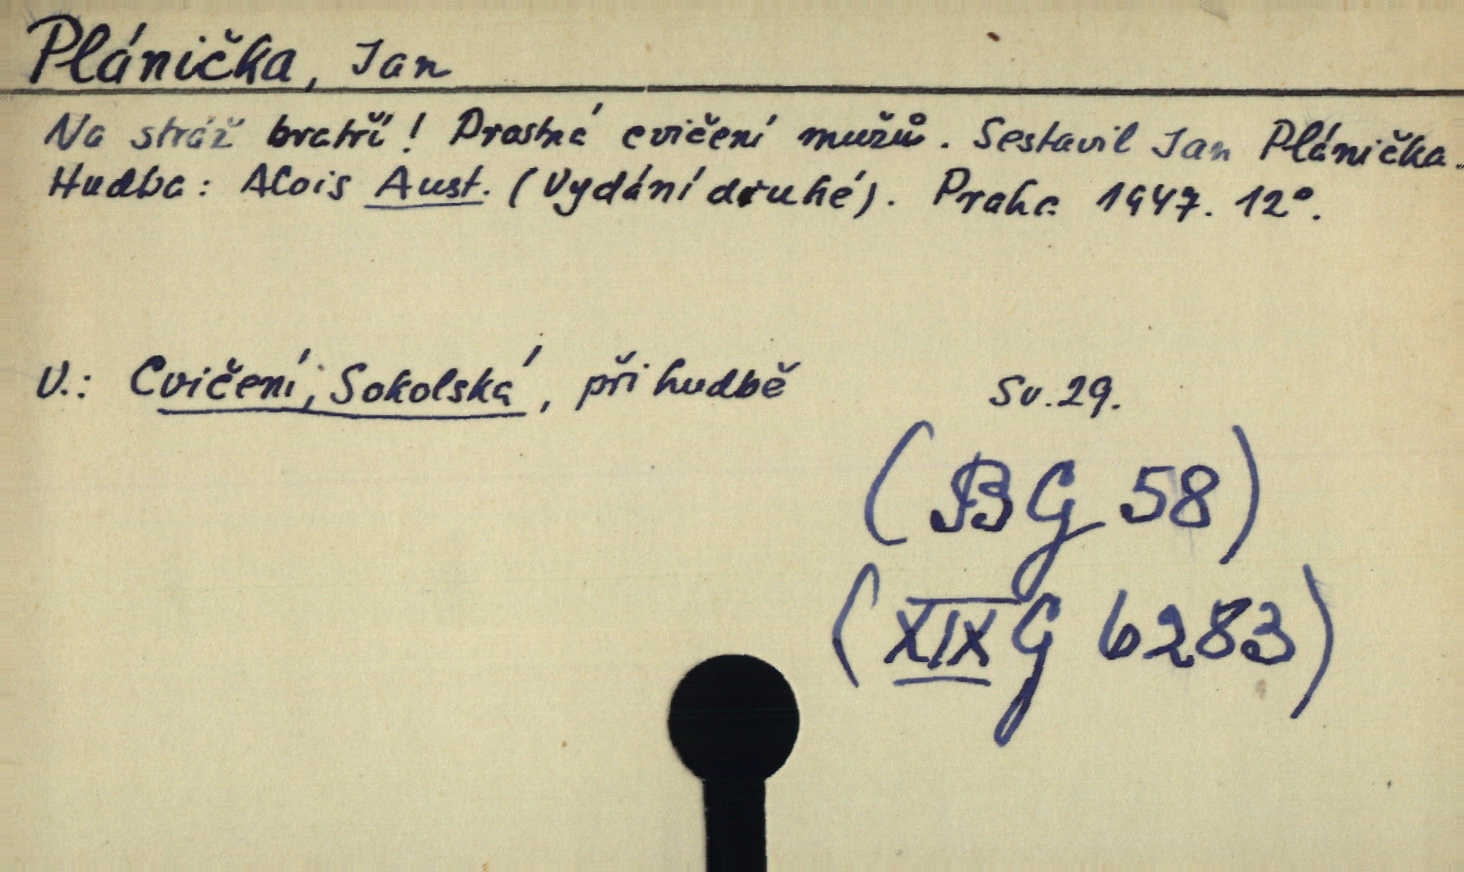 Plánička, Jan
Na stráž bratří! Prostná cvičení mužů. Sestavil Jan Plánička.
Hudba: Alois Aust. (Vydání druhé). Praha 1947. 12°.
V.: Cvičení, Sokolská, při hudbě
Sv. 29.
(BG 58)
(XIX G 6283)